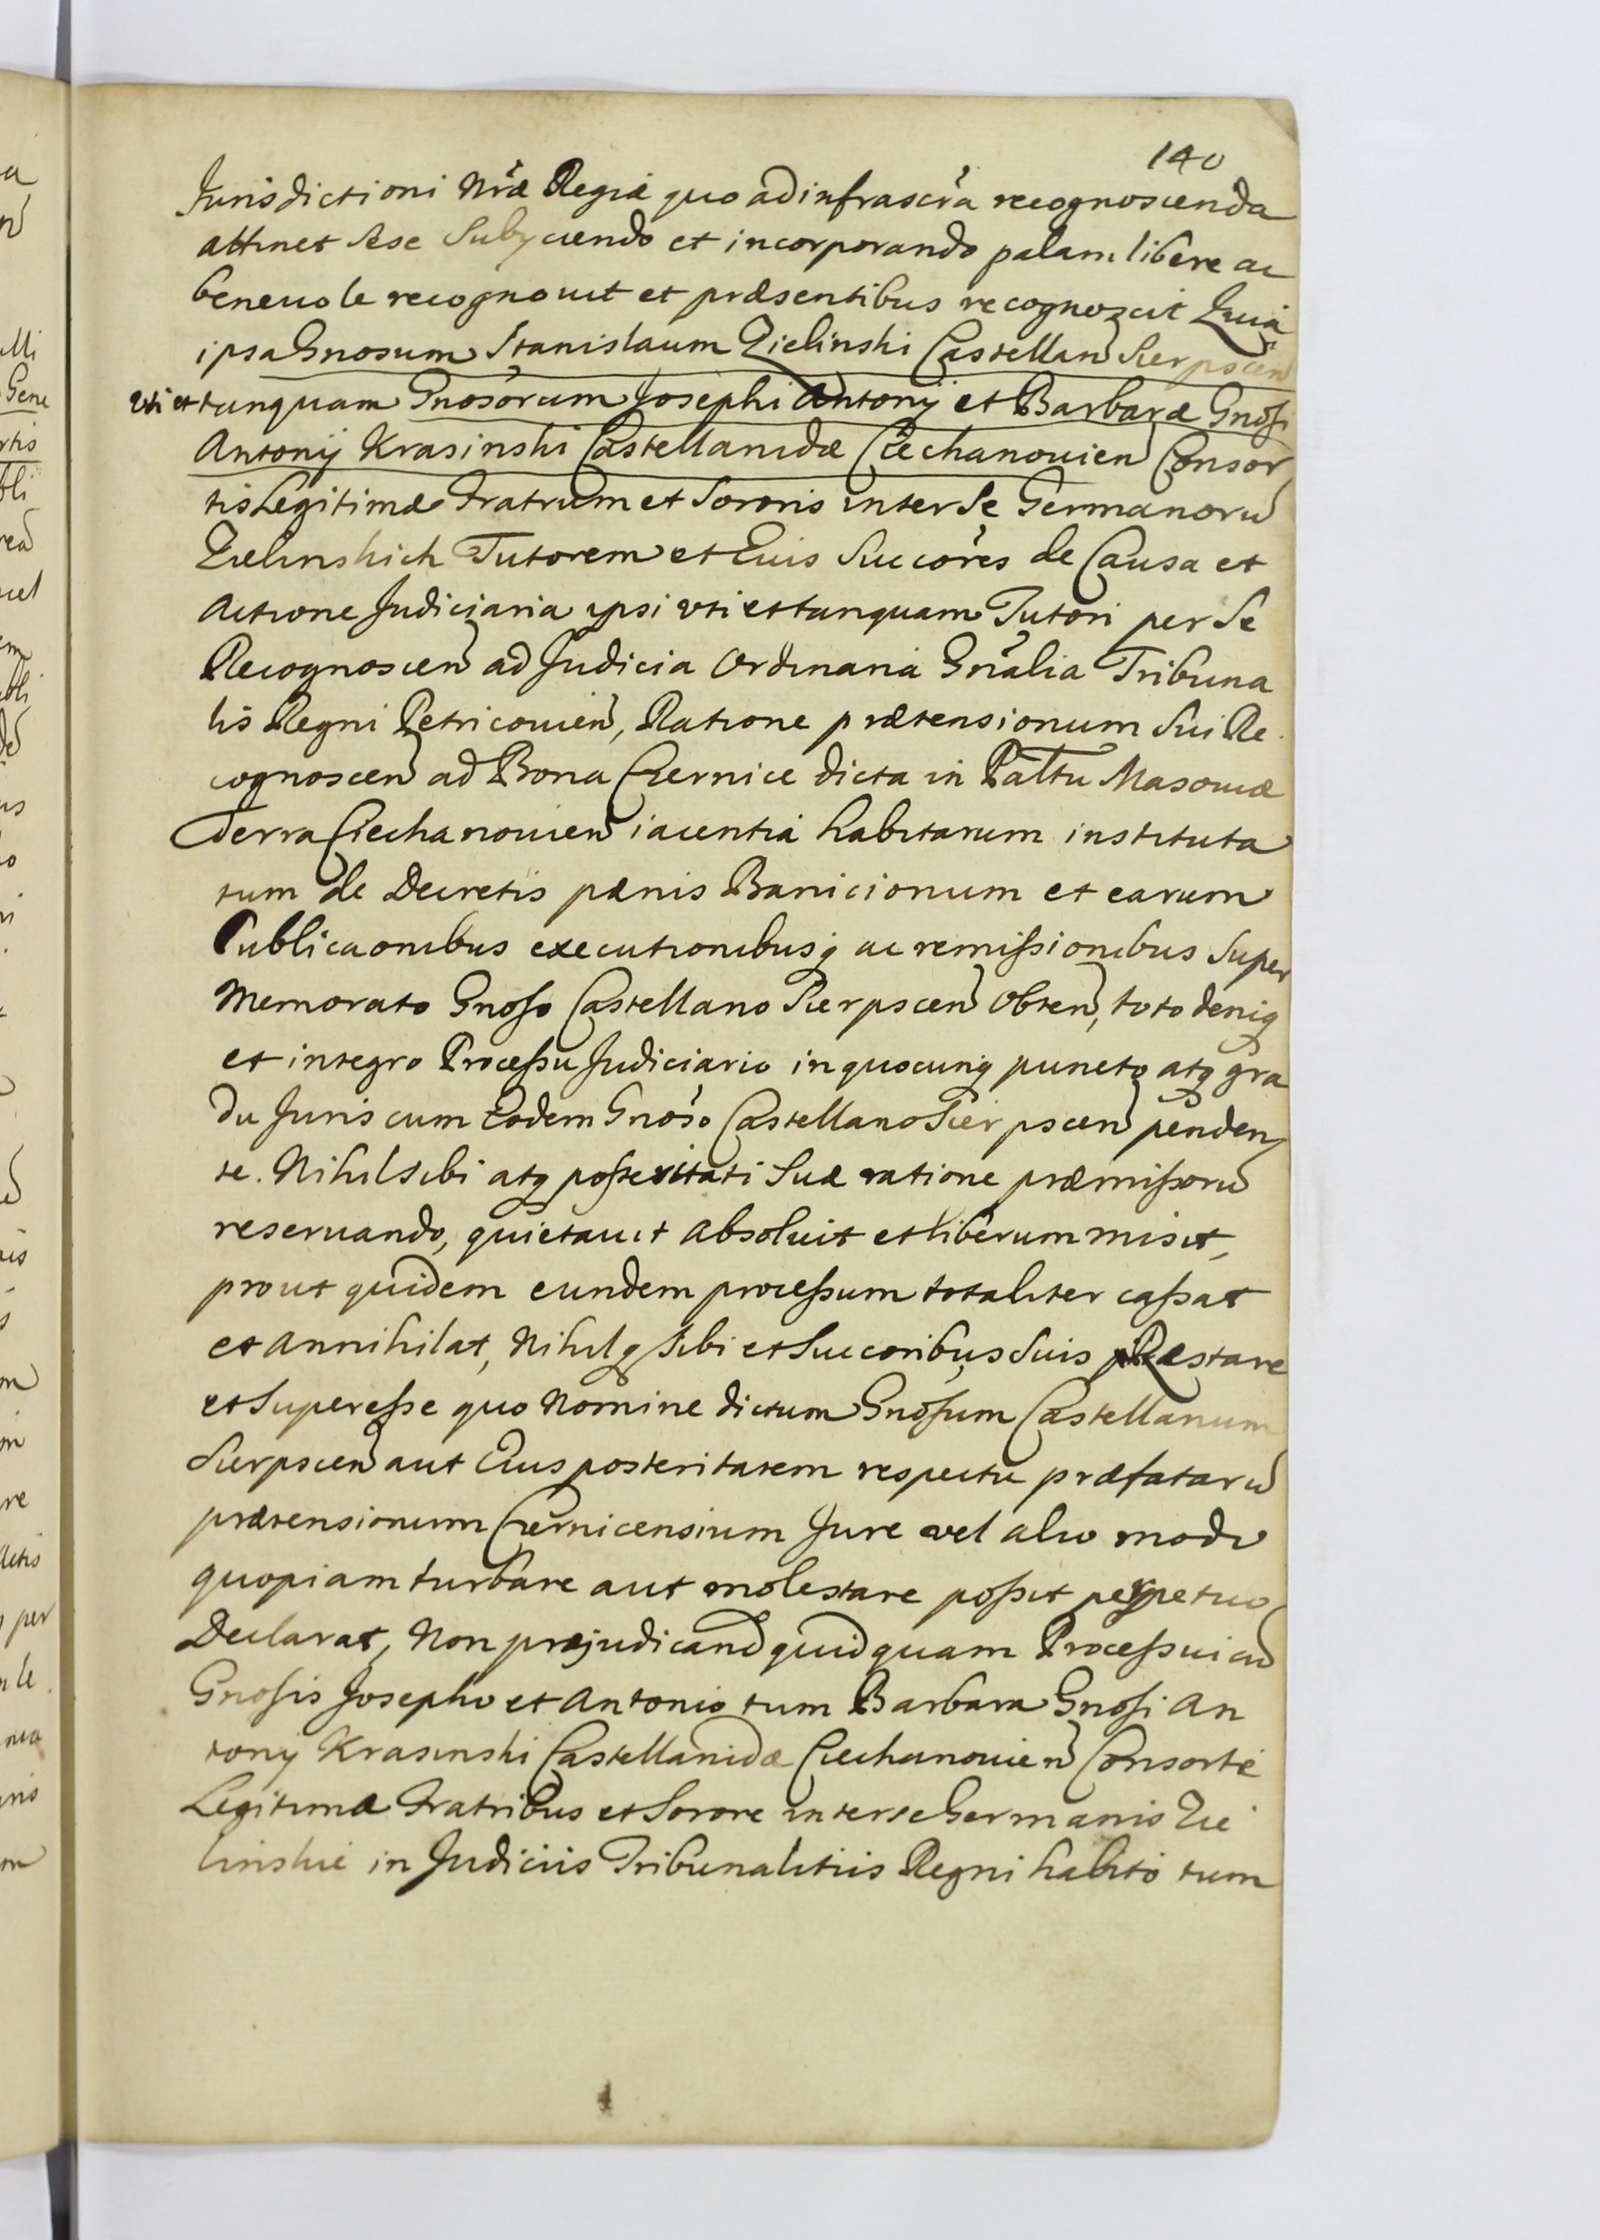 140
Jurisdictioni Nrae Regiae quo ad infrascra recognoscenda
attinet sese Subyciendo et incorporando palam libere ac
beneuole recognouit et praesentibus recognoscit Quia
ipsa Gnosum Stanislaum Zielinski Castellan Sierpscen
uti et tanquam Gnosorum Josephi Antonij et Barbarae Gnosi
Antonij Krasinski Castellanidae Ciechanouien Consor
tis Legitimae Fratrum et Sororis inter Se Germanoru
Zielinskich Tutorem et Euis Succores de Causa et
Actione Judiciaria ipsi uti et tanquam Tutori per Se
Recognoscen ad Judicia Ordinaria Gnralia Tribuna
lis Regni Petricouien, Ratione praetensionum Sui Re
cognoscen ad Bona Czernice dicta in Paltu Masouiae
Terra Ciechanouien iacentia habitarum instituta
tum de Decretis paenis Banicionum et earum
Publicaonibus executionibusq ac remissionibus Super
Memorato Gnoso Castellano Sierpscen Obten, toto deniq
et integro Processu Judiciario in quocunq puncto atq gra
du Juris cum Eodem Gnoso Castellano Sierpscen penden
te. Nihil sibi atq posteritati Suae ratione praemissoru
reseruando, quietauit absoluit et liberum misit,
prout quidem eundem processum totaliter cassat
et annihilat, Nihilq Sibi et Succoribus Suis praestare
et Superesse quo Nomine dictum Gnosum Castellanum
Sierpscen aut Eius posteritatem respectu praefataru
praetensionum Czernicensium Jure vel alio modo
quopiam turbare aut molestare possit perpetuo
Declarat, Non praejudicand quidquam Processui cu
Gnosis Josepho et Antonio tum Barbara Gnosi An
tonij Krasinski Castellanidae Ciechanouien Consorte
Legitima Fratribus et Sorore inter se Germanis Zie
linskie in Judiciis Tribunalitiis Regni habito tum